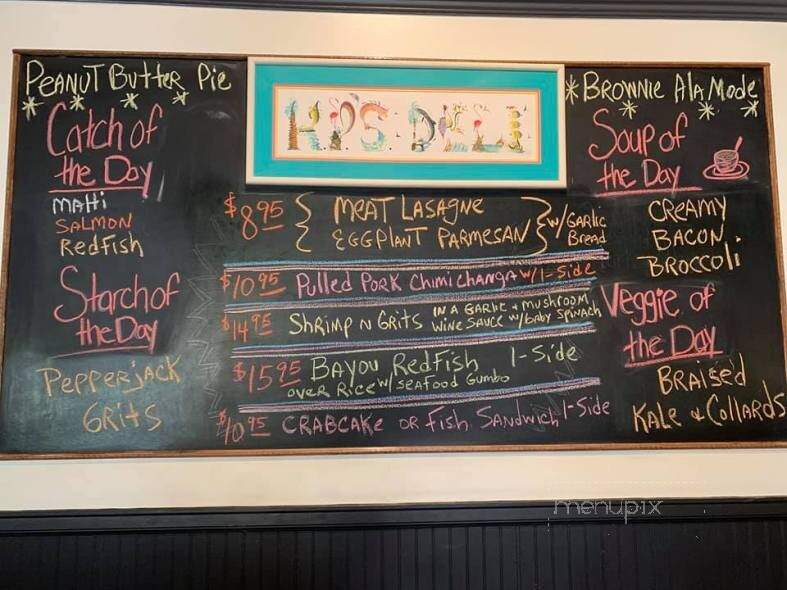 PEANUT BUTTER PIE
Catch of
the Day
MAHI
SALMON
REDFISH
Starch of
the Day
PEPPERJACK
GRITS
$8.95 MEAT LASAGNE
EGGPLANT PARMESAN
W/GARLIC
BREAD
$10.95 Pulled PORK CHIMICHANGA W/1-Side
$14.95 SHRIMP N GRITS IN A GARLIC + MUSHROOM
WINE SAUCE W/BABY SPINACH
$15.95 BAYOU REDFISH 1-Side
OVER RICE W/ SEAFOOD GUMBO
$10.95 CRABCAKE OR FISH SANDWICH 1-Side
BROWNIE ALA MODE
Soup of
the Day
CREAMY
BACON
BROCCOLI
Veggie of
the Day
BRAISED
KALE & COLLARDS
menupix